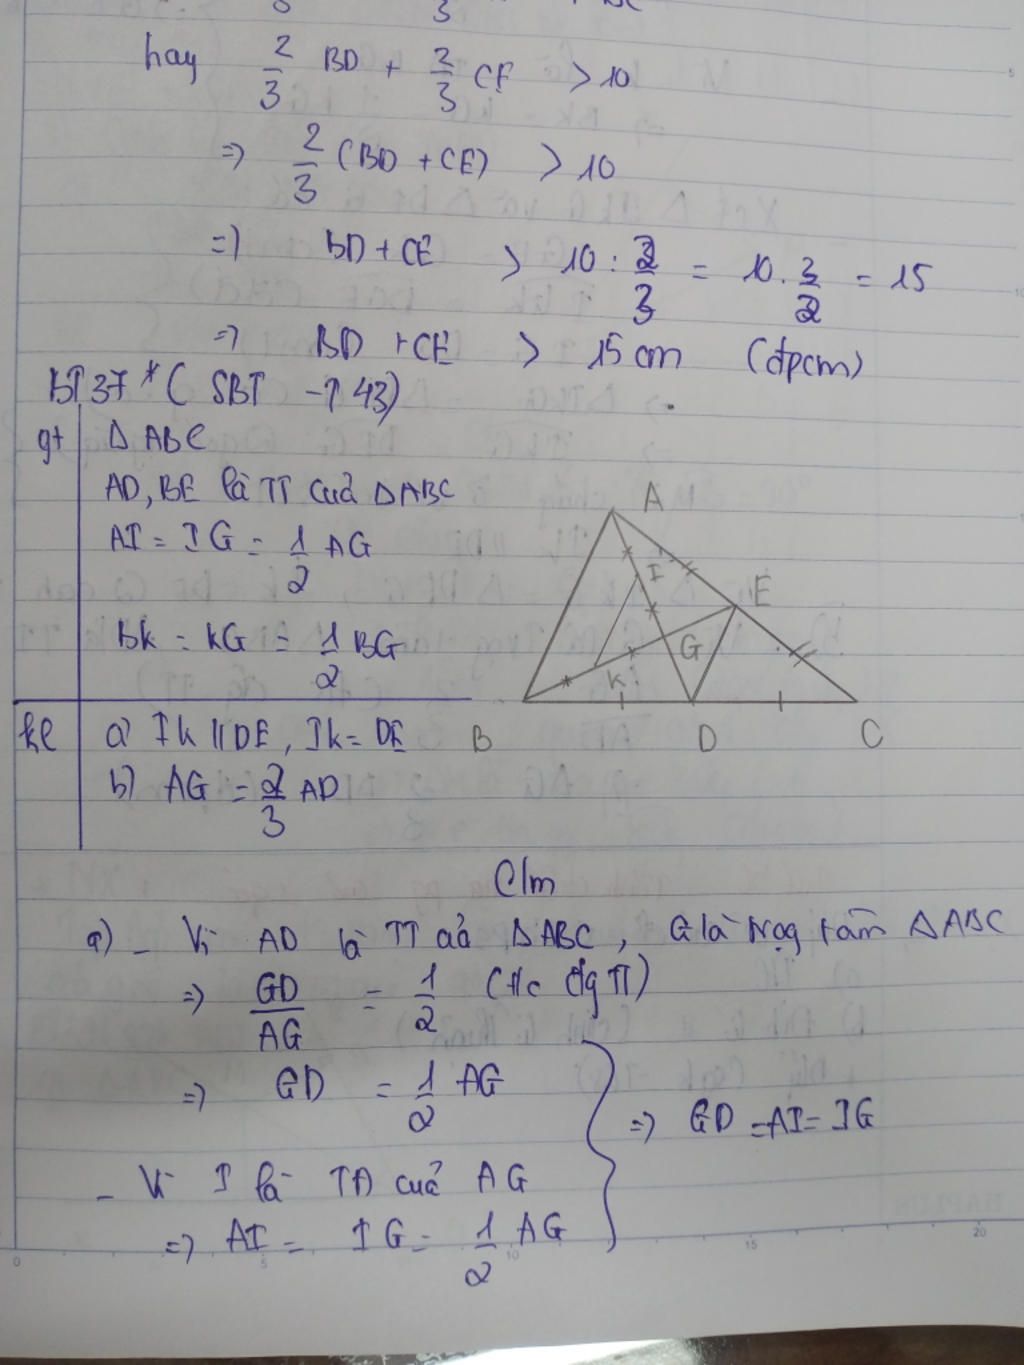 hay 2/3 BD + 2/3 CE > 10
=> 2/3 (BD + CE) > 10
=> BD + CE > 10 : 2/3 = 10 . 3/2 = 15
=> BD + CE > 15 cm (đpcm)
BT 37 * ( SBT - T 43)
gt ΔABC
AD, BE là TT của ΔABC
AI = IG = 1/2 AG
BK = KG = 1/2 BG
kl a) IK // DE, IK = DE
b) AG = 2/3 AD
A
I
E
G
K
B D C
C/m
a) - Vì AD là TT của ΔABC, G là trọng tâm ΔABC
=> GD/AG = 1/2 (t/c đg TT)
=> GD = 1/2 AG
=> GD = AI = IG
- Vì I là TĐ của AG
=> AI = IG = 1/2 AG
0 5 10 15 20